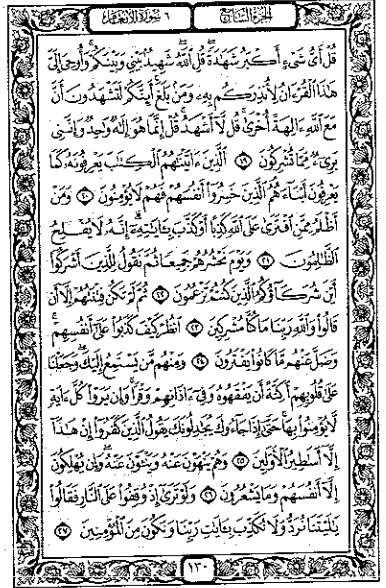 الجزء السابع ٦ سورة الأنعام
قُلْ أَيُّ شَيْءٍ أَكْبَرُ شَهَادَةً قُلِ اللَّهُ شَهِيدٌ بَيْنِي وَبَيْنَكُمْ وَأُوحِيَ إِلَيَّ
هَٰذَا الْقُرْءَانُ لِأُنذِرَكُم بِهِ وَمَن بَلَغَ أَئِنَّكُمْ لَتَشْهَدُونَ أَنَّ
مَعَ اللَّهِ ءَالِهَةً أُخْرَىٰ قُل لَّا أَشْهَدُ قُلْ إِنَّمَا هُوَ إِلَٰهٌ وَٰحِدٌ وَإِنَّنِي
بَرِيءٌ مِّمَّا تُشْرِكُونَ ١٩ الَّذِينَ ءَاتَيْنَٰهُمُ الْكِتَٰبَ يَعْرِفُونَهُ كَمَا
يَعْرِفُونَ أَبْنَاءَهُمُ الَّذِينَ خَسِرُوا أَنفُسَهُمْ فَهُمْ لَا يُؤْمِنُونَ ٢٠ وَمَنْ
أَظْلَمُ مِمَّنِ افْتَرَىٰ عَلَى اللَّهِ كَذِبًا أَوْ كَذَّبَ بِـَٔايَٰتِهِ إِنَّهُ لَا يُفْلِحُ
الظَّٰلِمُونَ ٢١ وَيَوْمَ نَحْشُرُهُمْ جَمِيعًا ثُمَّ نَقُولُ لِلَّذِينَ أَشْرَكُوا
أَيْنَ شُرَكَاؤُكُمُ الَّذِينَ كُنتُمْ تَزْعُمُونَ ٢٢ ثُمَّ لَمْ تَكُن فِتْنَتُهُمْ إِلَّا أَن
قَالُوا وَاللَّهِ رَبِّنَا مَا كُنَّا مُشْرِكِينَ ٢٣ انظُرْ كَيْفَ كَذَبُوا عَلَىٰ أَنفُسِهِمْ
وَضَلَّ عَنْهُم مَّا كَانُوا يَفْتَرُونَ ٢٤ وَمِنْهُم مَّن يَسْتَمِعُ إِلَيْكَ وَجَعَلْنَا
عَلَىٰ قُلُوبِهِمْ أَكِنَّةً أَن يَفْقَهُوهُ وَفِي ءَاذَانِهِمْ وَقْرًا وَإِن يَرَوْا كُلَّ ءَايَةٍ
لَّا يُؤْمِنُوا بِهَا حَتَّىٰ إِذَا جَاءُوكَ يُجَٰدِلُونَكَ يَقُولُ الَّذِينَ كَفَرُوا إِنْ هَٰذَا
إِلَّا أَسَٰطِيرُ الْأَوَّلِينَ ٢٥ وَهُمْ يَنْهَوْنَ عَنْهُ وَيَنْـَٔوْنَ عَنْهُ وَإِن يُهْلِكُونَ
إِلَّا أَنفُسَهُمْ وَمَا يَشْعُرُونَ ٢٦ وَلَوْ تَرَىٰ إِذْ وُقِفُوا عَلَى النَّارِ فَقَالُوا
يَٰلَيْتَنَا نُرَدُّ وَلَا نُكَذِّبَ بِـَٔايَٰتِ رَبِّنَا وَنَكُونَ مِنَ الْمُؤْمِنِينَ ٢٧
١٣٠